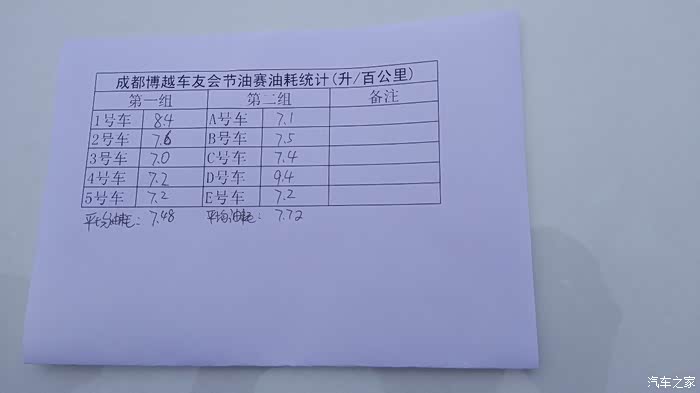 成都博越车友会节油赛油耗统计(升/百公里)
第一组 第二组 备注
1号车 8.4 A号车 7.1
2号车 7.6 B号车 7.5
3号车 7.0 C号车 7.4
4号车 7.2 D号车 9.4
5号车 7.2 E号车 7.2
平均油耗: 7.48 平均油耗: 7.72
汽车之家